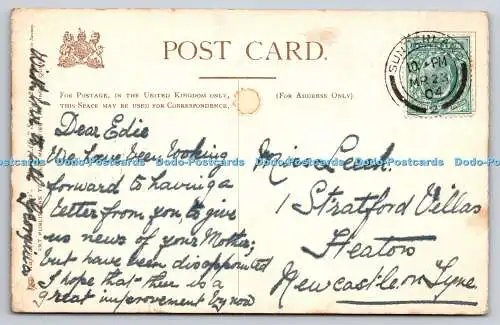 POST CARD.
FOR POSTAGE, IN THE UNITED KINGDOM ONLY,
THIS SPACE MAY BE USED FOR CORRESPONDENCE.
(FOR ADDRESS ONLY.)
SUNDERLAND
10 PM
MR 23
04
Dear Edie
We have been looking
forward to having a
letter from you, to give
us news of your Mother;
but have been disappointed
I hope that ther is a
great improvement by now
With love to all
Miss Leech.
1 Stratford Villas
Heaton
Newcastle on Tyne
Dodo-Postcards.com Dodo-Postcards.com Dodo-Postcards.com Dodo-Postcards.com